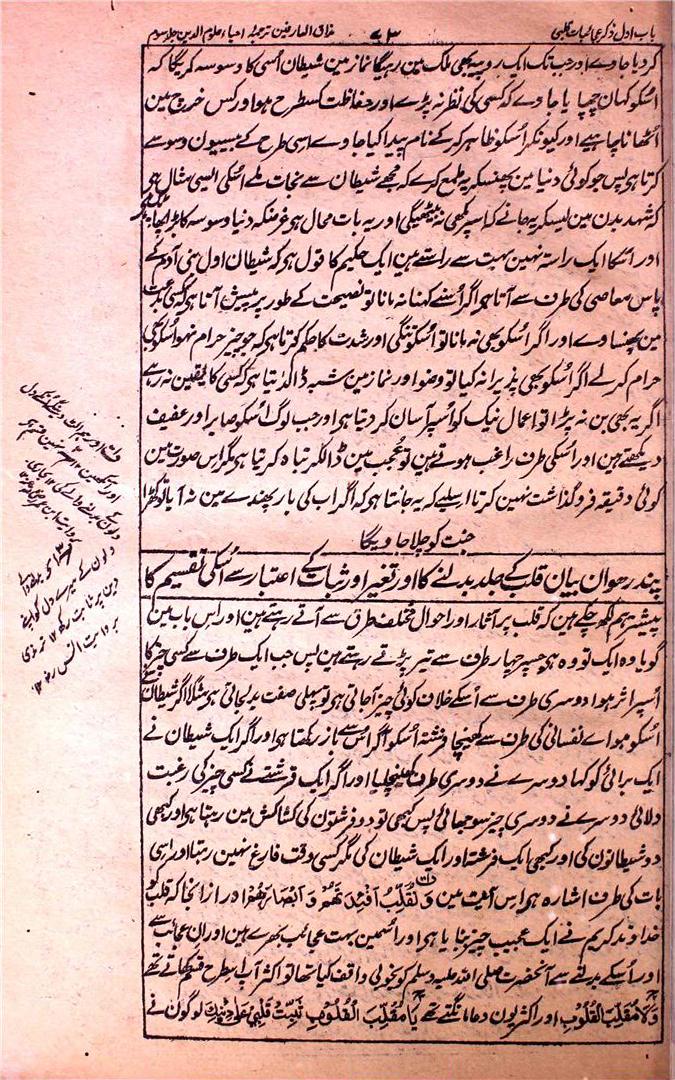 باب اول ذکر عجائبات قلبی
۷۳
مذاق العارفین ترجمۂ احیاء علوم الدین جلد سوم
کر دیا جاوے اور جب تک ایک روپیہ بھی ملک مین رہیگا نماز مین شیطان اُسی کا وسوسہ کریگا کہ
اسکو کہان چھپایا جاوے کہ کسی کی نظر نہ پڑے اور حفاظت کسطرح ہو اور کس خرچ مین
اُٹھانا چاہیے اور کیونکر اُسکو ظاہر کر کے نام پیدا کیا جاوے اسی طرح کے بیسیون وسوسے
کرتا ہی پس جو کوئی دنیا مین پھنسکر یہ طمع کرے کہ مجھے شیطان سے نجات ملے اُسکی ایسی مثال ہی
کہ شہد بدن مین لیسکر یہ جانے کہ اسپر مکھی نہ بیٹھیگی اور یہ بات محال ہی غرضکہ دنیا وسوسہ کا بڑا پھاٹک ہی
اور اسکا ایک راستہ نہین بہت سے راستے ہین ایک حکیم کا قول ہی کہ شیطان اول بنی آدم کے
پاس معاصی کی طرف سے آتا ہی اگر اُسنے کہنا نہ مانا تو نصیحت کے طور پر پیش آتا ہی کہ کسی بدعت
مین پھنساوے اور اگر اسکو بھی نہ مانا تو اُسکو تنگی اور شدت کا حکم کرتا ہی کہ جو چیز حرام نہو اُسکو بھی
حرام کر لے اگر اسکو بھی پذیرا نہ کیا تو وضو اور نماز مین شبہہ ڈالدیتا ہی کہ کسی کا یقین نہ رہے
اگر یہ بھی بن نہ پڑا تو اعمال نیک کو اُسپر آسان کر دیتا ہی اور جب لوگ اُسکو صابر اور عفیف
دیکھتے ہین اور اُسکی طرف راغب ہوتے ہین تو عُجب مین ڈالکر تباہ کرتا ہی مگر اس صورت مین
کوئی دقیقہ فروگذاشت نہین کرتا اسلیے کہ یہ جانتا ہی کہ اگر اب کی بار پھندے مین نہ آیا تو کھڑا
جنت کو چلا جاویگا
پندرھوان بیان قلب کے جلد بدلنے کا اور تغیر اور ثبات کے اعتبار سے اُسکی تقسیم کا
پیشتر ہم لکھ چکے ہین کہ قلب پر آثار اور احوال مختلف طرق سے آتے رہتے ہین اور اس باب مین
گویا وہ ایک تودہ ہی جسپر چہار طرف سے تیر پڑتے رہتے ہین پس جب ایک طرف سے کسی چیز کا
اُسپر اثر ہوا دوسری طرف سے اُسکے خلاف کوئی چیز آجاتی ہی تو پہلی صفت بدلجاتی ہی مثلاً اگر شیطان نے
اُسکو ہواے نفسانی کی طرف سے کھینچا فرشتہ اُسکو آکر اُس سے باز رکھتا ہی اور اگر ایک شیطان نے
ایک برائی کو کہا دوسرے نے دوسری طرف کھینچ لیا اور اگر ایک فرشتے نے کسی چیز کی رغبت
دلائی دوسرے نے دوسری چیز سوجھائی پس کبھی تو دو فرشتون کی کشاکش مین رہتا ہی اور کبھی
دو شیطانون کی اور کبھی ایک فرشتہ اور ایک شیطان کی مگر کسی وقت فارغ نہین رہتا اور اسی
بات کی طرف اشارہ ہی اس آیت مین وَنُقَلِّبُ اَفْئِدَتَهُمْ وَاَبْصَارَهُمْ اور از انجا کہ قلب کو
خداوند کریم نے ایک عجیب چیز بنایا ہی اور اسمین بہت عجائب بھرے ہین اور ان عجائب سے
اور اُسکے بدلنے سے آنحضرت صلی اللہ علیہ وسلم کو بخوبی واقف کیا تھا تو اکثر آپ اسطرح قسم کھاتے تھے
لَا وَمُقَلِّبَ الْقُلُوْبِ اور اکثر یون دعا مانگتے تھے یَا مُقَلِّبَ الْقُلُوْبِ ثَبِّتْ قَلْبِیْ عَلٰی دِیْنِكَ لوگون نے
اور آنکھین
دلون کے
دلون کے میرے دل کو اپنے
دین پر ثابت رکھ ۱۲ ترمذی
بروایت انس رض ۱۲